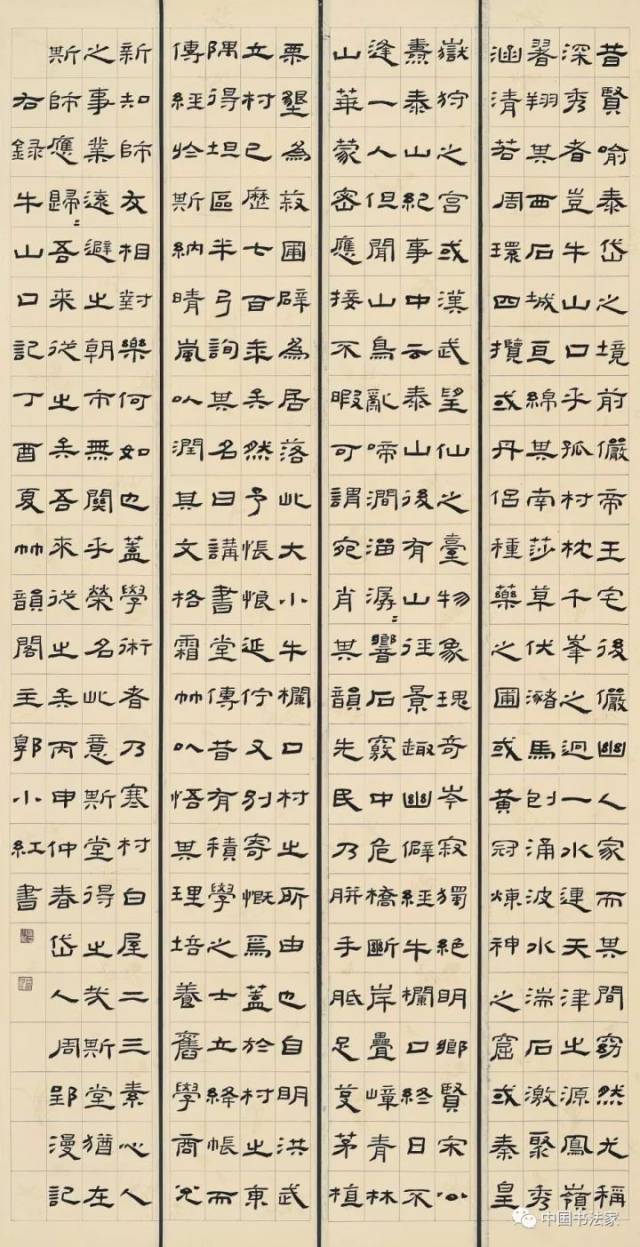 昔賢喻泰岱之境前儼帝王宅後儼幽人家而其間窈然尤稱
深秀者豈牛山口乎孤村枕千峯之迥一水連天津之源鳳嶺
翥翔其西石城亘綿其南莎草伏瀦馬刨涌波水湍石激聚秀
涵清若周環四攬或丹侶種藥之圃或黃冠煉神之窟或秦皇
嶽狩之宮或漢武望仙之臺物象瑰奇岑寂獨絕明鄉賢宋公
燾泰山紀事中云泰山後有山徑景趣幽僻經牛欄口終日不
逢一人但聞山鳥亂啼澗溜潺〻響石竅中危橋斷岸疊嶂青林
山華蒙密應接不暇可謂宛肖其韻先民乃胼手胝足芟茅植
栗墾為菽圃辟為居落此大小牛欄口村之所由也自明洪武
立村已歷七百年矣然予悵恨延佇又別寄慨焉蓋於村之東
隅得坦區半弓詢其名曰講書堂傳昔有積學之士立絳帳而
傳經於斯納晴嵐以潤其文格霜竹以悟其理培養舊學商兌
新知師友相對樂何如也蓋學術者乃寒村白屋二三素心人
之事業遠避之朝市無關乎榮名此意斯堂得之哉斯堂猶在
斯師應歸〻吾來從之矣吾來從之矣丙申仲春岱人周郢漫記
右錄牛山口記丁酉夏竹韻閣主郭小紅書
中国书法家